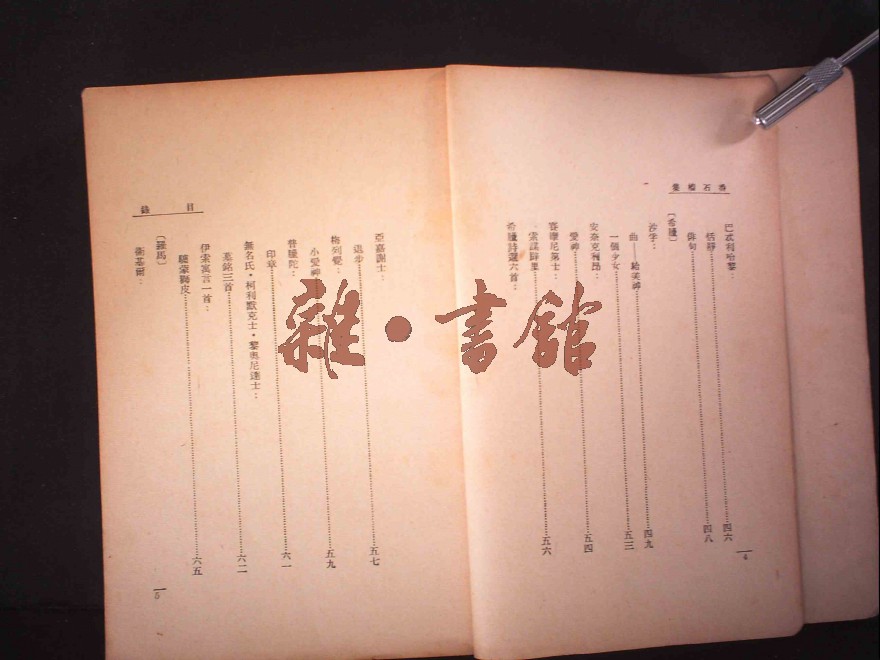 集檀石香
巴忒利哈黎：
恬靜……四六
俳句……四八
〔希臘〕
沙孚：
曲——給美神……四九
一個少女……五三
安奈克利昂：
愛神……五四
賽摩尼第士：
一索謀歸里……五六
希臘詩選六首：
4
目錄
亞嘉謝士：
退步……五七
梅列覺：
小愛神……五九
普臘陀：
印章……六一
無名氏・柯利默克士・黎奧尼達士：
墓銘三首……六二
伊索寓言一首：
驢蒙獅皮……六五
〔羅馬〕
衛基爾：
5
雜・書館